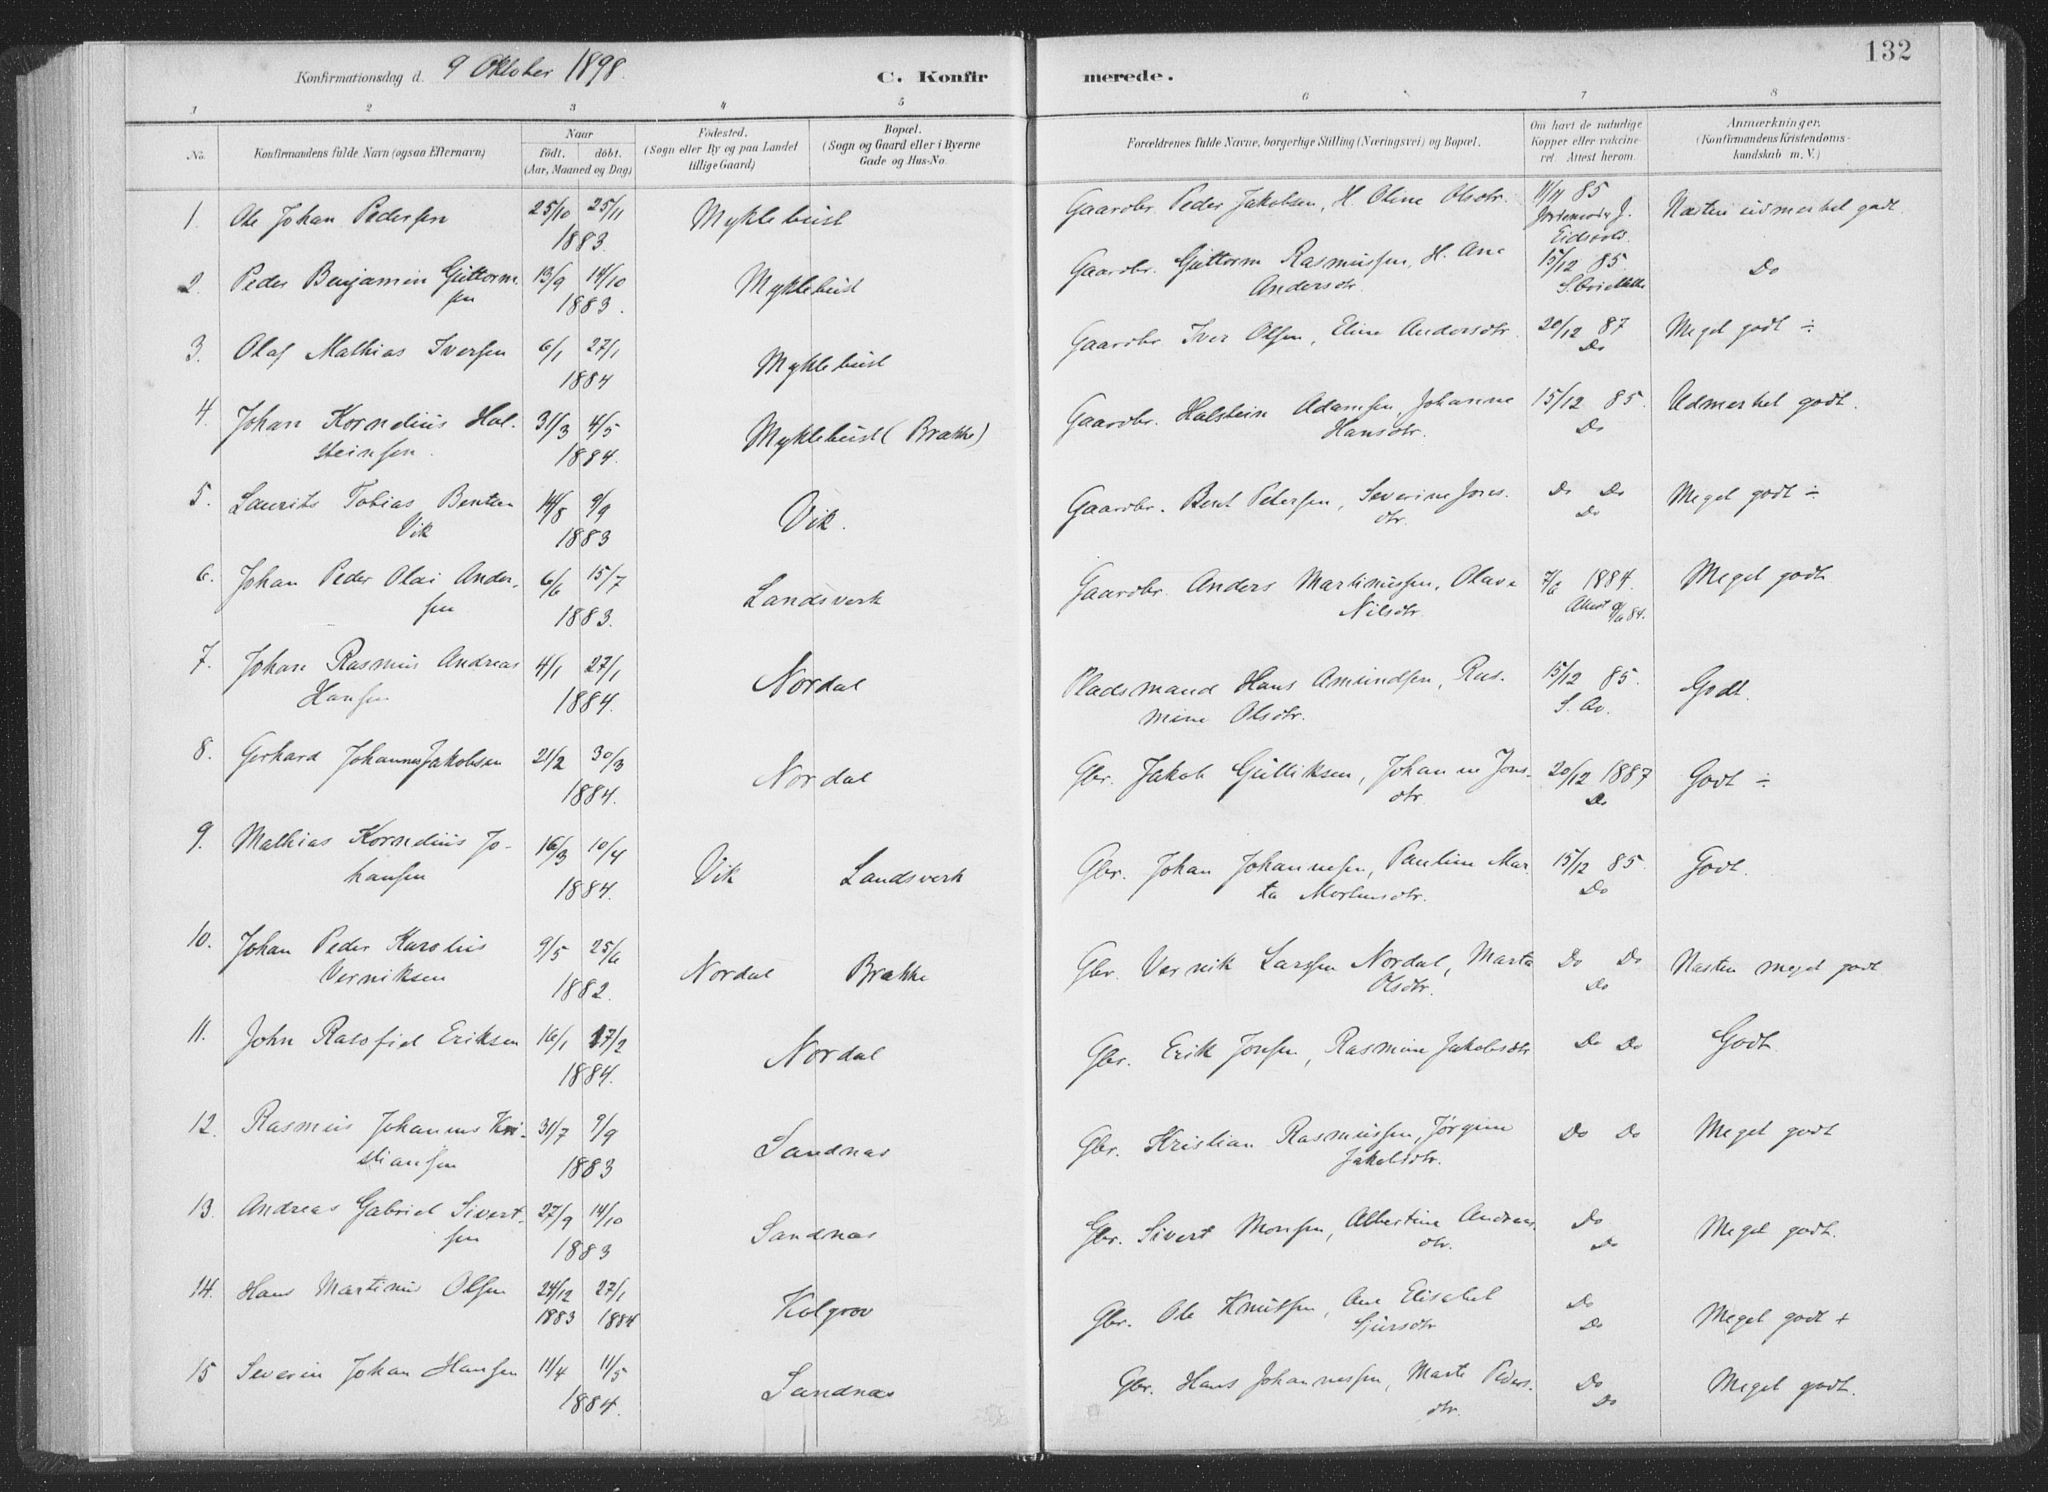 132
Konfirmationsdag d. 9 Oktober 1898.
C. Konfirmerede.
1 2 3 4 5 6 7 8
No.
Konfirmandens fulde Navn (ogsaa Efternavn)
Naar
födt. döbt.
(Aar, Maaned og Dag)
Födested.
(Sogn eller By og paa Landet
tillige Gaard)
Bopæl.
(Sogn og Gaard eller i Byerne
Gade og Hus-No.
Forældrenes fulde Navne, borgerlige Stilling (Næringsvei) og Bopæl.
Om havt de naturlige
Kopper eller vakcine-
ret. Attest herom.
Anmærkninger.
(Konfirmandens Kristendoms-
kundskab m. V.)
1. Ole Johan Pedersen 25/10 25/11 1883. Myklebust Gaardbr. Peder Jakobsen, H. Oline Olsdtr. 11/11 85 J. Eidsvold. Næsten udmerket godt.
2. Peder Benjamin Guttorm-
sen 13/9 14/10 1883. Myklebust Gaardbr. Guttorm Rasmussen, H. Ane
Andersdtr. 15/12 85. Do
3. Olaf Mathias Iversen 6/1 27/1 1884 Myklebust Gaardbr. Iver Olsen, Eline Andersdtr. 20/12 87 Do Meget godt ÷
4. Johan Kornelius Hal-
steinsen. 31/3 4/5 1884. Myklebust (Brække) Gaardbr. Halstein Adamsen, Johanne
Hansdtr. 15/12 85. Do Udmerket godt.
5. Laurits Tobias Bentsen
Vik 14/8 9/9 1883 Vik. Gaardbr. Bent Petersen, Severine Jons-
dtr. Do Do Do Meget godt ÷
6. Johan Peder Olai Ander-
sen 6/6 15/7 1883. Landsverk Gaardbr. Anders Martinussen, Olava
Nilsdtr. 7/6 1884. Attest 84. Meget godt
7. Johan Rasmus Andreas
Hansen 4/1 27/1 1884. Nordal Pladsmand Hans Amundsen, Ras-
mine Olsdtr. 15/12 85. S. Av. Godt.
8. Gerhard Johannes Jakobsen 21/2 30/3 1884. Nordal Gbr. Jakob Gulliksen, Johanne Jons-
dtr. 20/12 1887 Do Godt ÷
9. Mathias Kornelius Jo-
hansen 16/3 10/4 1884. Vik Landsverk Gbr. Johan Johannesen, Pauline Mar-
ta Mortensdtr. 15/12 85. Do Godt.
10. Johan Peder Karolius
Verniksen 9/5 25/6 1882. Nordal Brække Gbr. Vernik Larssen Nordal, Marta
Olsdtr. Do Do Do Næsten meget godt
11. John Eriksen 16/1 17/2 1884. Nordal Gbr. Erik Jonsen, Rasmine Jakobsdtr Do Do Godt.
12. Rasmus Johannes Kri-
stiansen 31/7 9/9 1883 Sandnæs Gbr. Kristian Rasmussen, Jørgine
Jakobsdtr. Do Do Meget godt
13. Andreas Gabriel Sivert-
sen 27/9 14/10 1883 Sandnæs Gbr. Sivert Monsen, Albertine Andreas
dtr. Do Do Meget godt.
14. Hans Martinus Olsen 24/12 1883 27/1 1884 Kolgrov Gbr. Ole Knutsen, Ane Elisabet
Sjursdtr Do Do Meget godt +
15 Severin Johan Hansen 11/4 11/5 1884. Sandnæs Gbr. Hans Johannessen, Marte Peders-
dtr. Do Do Meget godt.